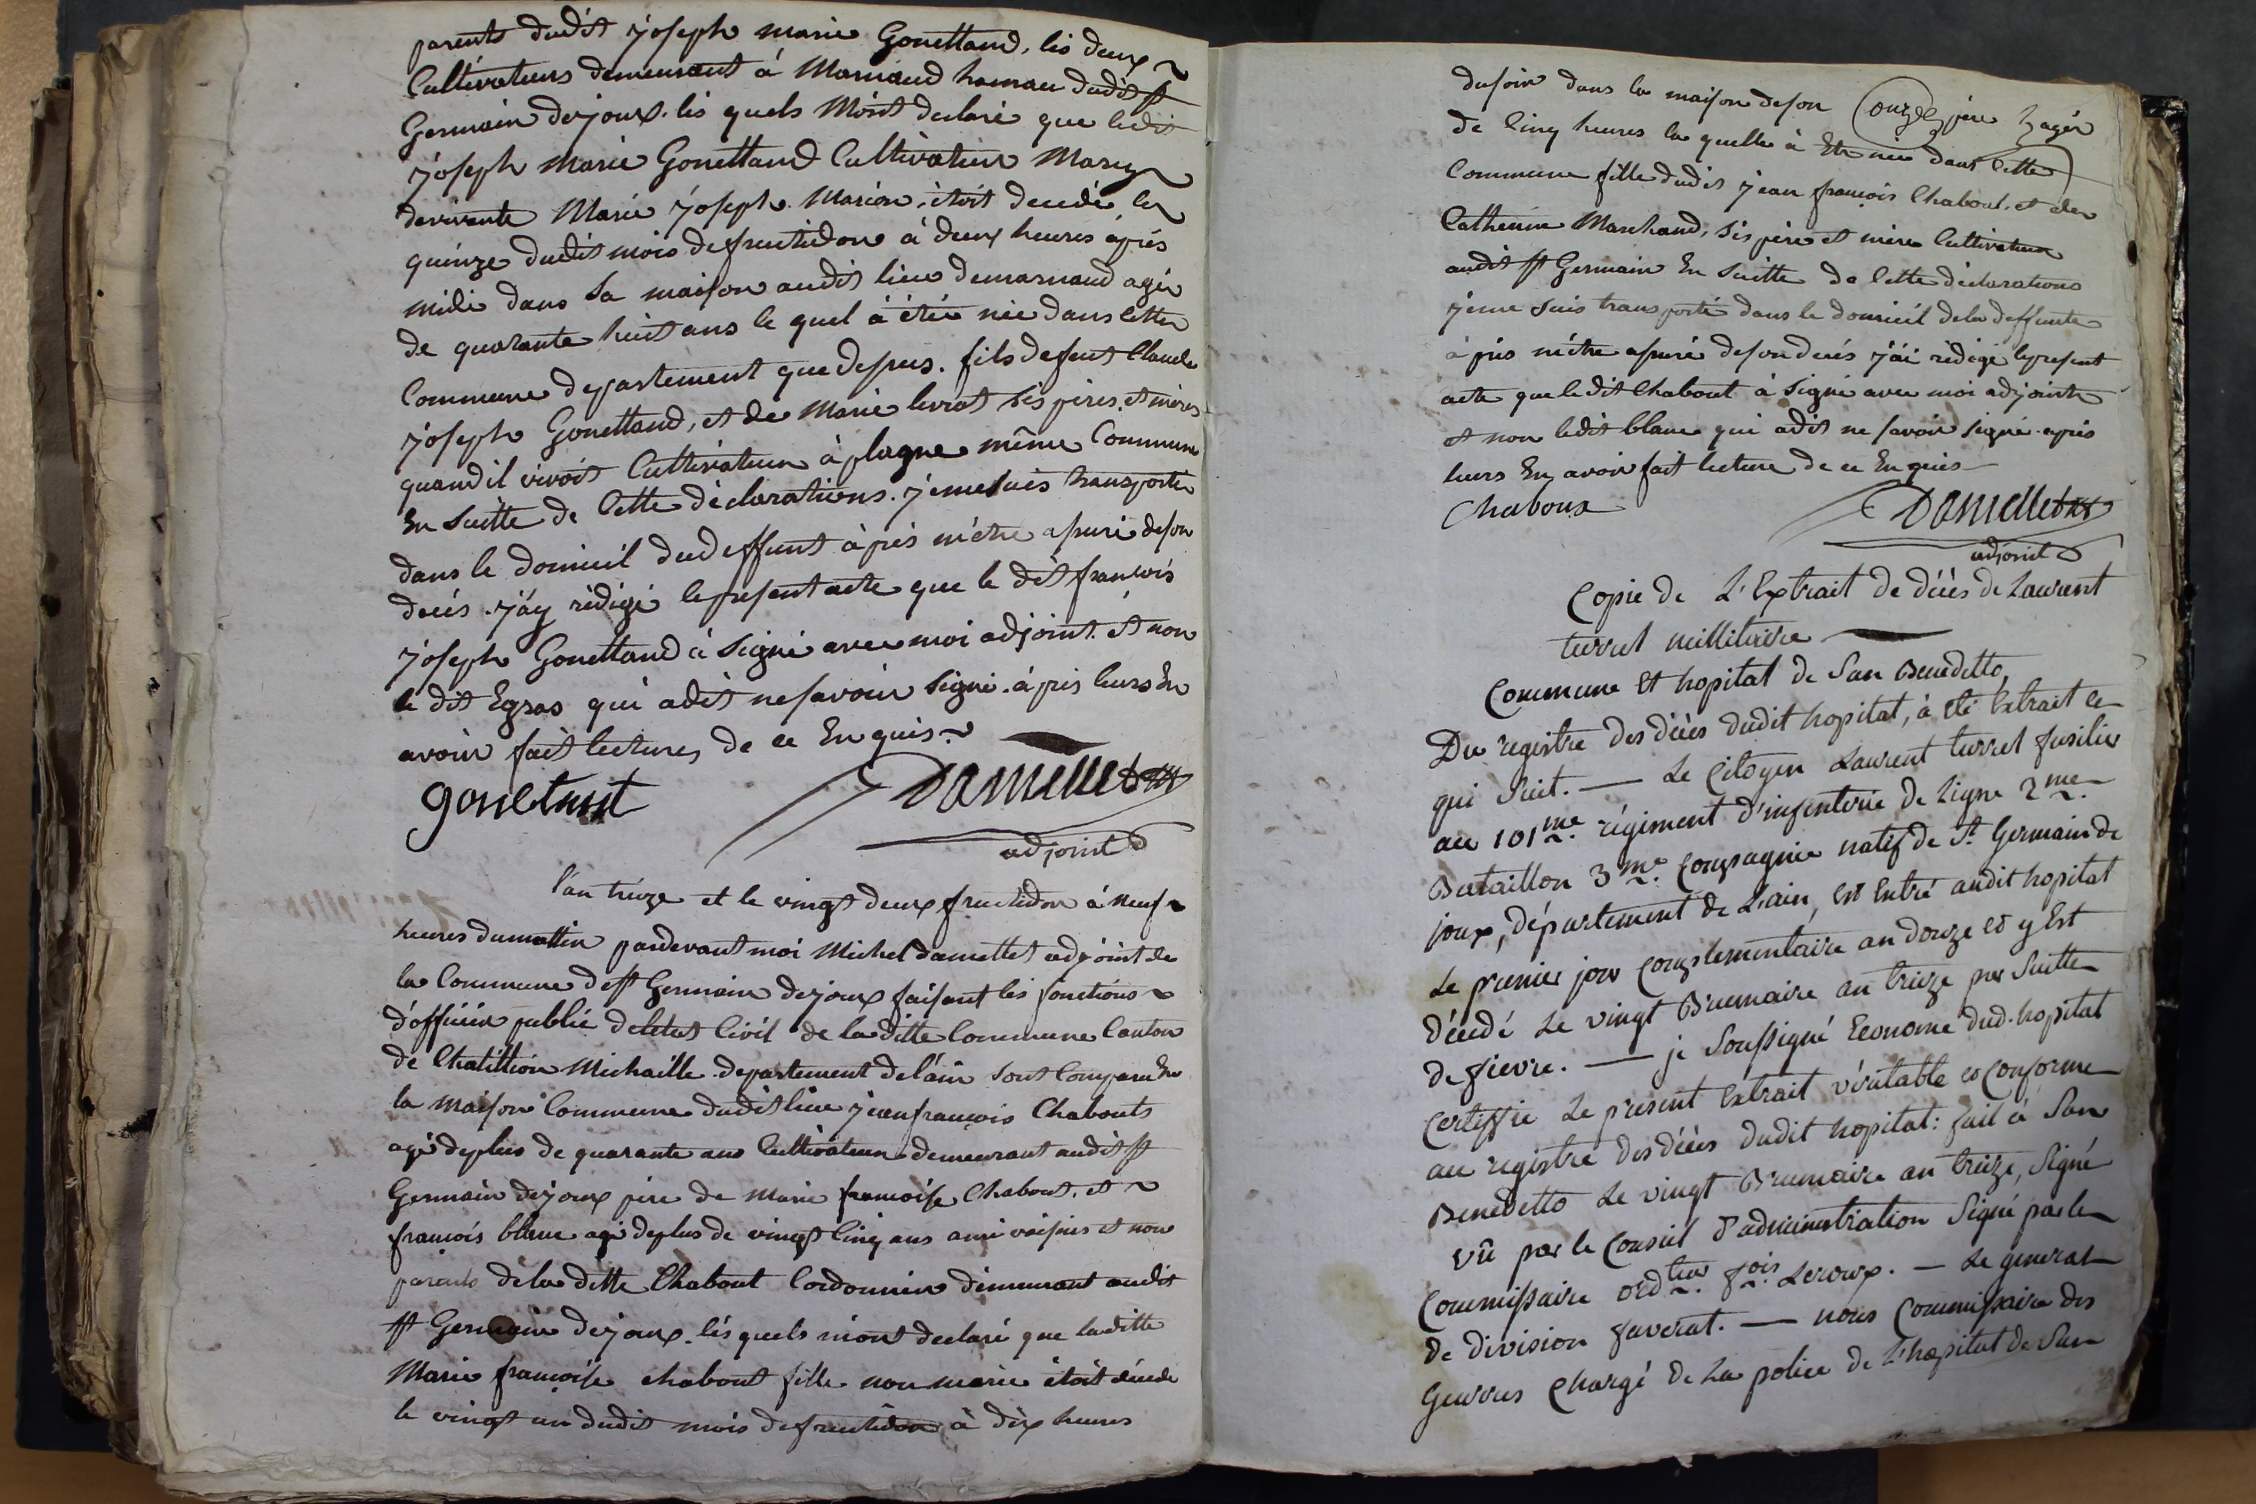 parents dudit joseph marie Gonettand, les deux
Cultivateurs demeurant á Marnaud hamau dudit st
Germain dejoux. les quels Mont declaré que ledit
joseph Marie Gonettand Cultivateur Mary
devivante Marie joseph Marion, étoit decedé le
quinze dudit mois defructidor à deux heures après
midi dans sa maison audit lieu demarnaud agée
de quarante huit ans le quel à étée née dans cette
Commune departement que dessus. fils defeut Claude
joseph Gonettand, et de Marie levrat ses péres et méres
quand il vivoit Cultivateur à plagne même Commune
En suitte de Cette déclarations. jemesuis transporté
dans le domicil dudeffunt àprés m'étre assuré deson
decés. j'ay rédigé lepresent acte que le dit francois
joseph Gonettand à signé avec moi adjoint. et non
le dit Egraz qui adit nesavoir signé. àprés leurs En
avoir fait lectures de ce Enquis
gonetant Damettet
adjoint
l'an treize et le vingt deux fructidor à neuf
heures dumattin pardevant moi Michel damettet adjoint de
la Commune de st Germain dejoux faisant les fonctions
d'officiér publié deletat Civil de la ditte Commune Canton
de Chatillion Michaille departement del'ain sont Comparu En
la maison Commune dudit lieu jean francois Chabouts
agé deplus de quarante ans Cultivateur demeurant audit st
Germain dejoux pére de Marie francoise Chabout. et
francois blanc agé deplus de vingt Cinq ans ami voisins et non
parents dela ditte Chabout Cordonnier demeurant audit
st Germain dejoux. lés quels m'ont declaré que laditte
Marie francoise chabout fille non marié étoit décédé
le vingt un dudit mois defructidor à dix heures
dusoir dans la maison deson pére agée
de Cinq heures la quelle à Etre née dans Cette
Commune fille dudit jean francois Chabout. et de
Catherine Marchand, ses pére et mére Cultivateur
audit st Germain En suitte de Cette déclarations
jeme suis transporté dans le domicil dela deffunte
àprés m'étre assuré deson decés j'ai rédigé lepresent
acte que ledit Chabout à signé avec moi adjoint
et non ledit blanc qui adit ne savoir signé après
leurs En avoir fait lecture de ce Enquis
Chaboux Damettet
adjoint
Copie de L'Extrait de décès de Laurent
turrel millitaire
Commune Et hopital de San Benedetto,
Du registre des décès dudit hopital, à été Extrait ce
qui suit. — Le Citoyen Laurent turrel fusilier
au 101me. régiment d'infenterie de ligne 2me.
Bataillon 3me. Compagnie natif de St. Germain de
joux, département de L'ain, est Entré audit hopital
Le premier jour Complementaire an douze et y Est
décédé Le vingt Brumaire an treize par suitte
de fievre. — je Soussigné Econome dud. hopital
Certiffie Le présent Extrait véritable et Conforme
au registre des décès dudit hopital: fait à San
Benedetto Le vingt Brumaire an treize, Signé
vû par le Conseil d'administration Signé par le
Commissaire ordteur. fois. Leroux. — Le general
de division faverat. — nous Commissaire des
Guerres Chargé de La police de L'hopital de San